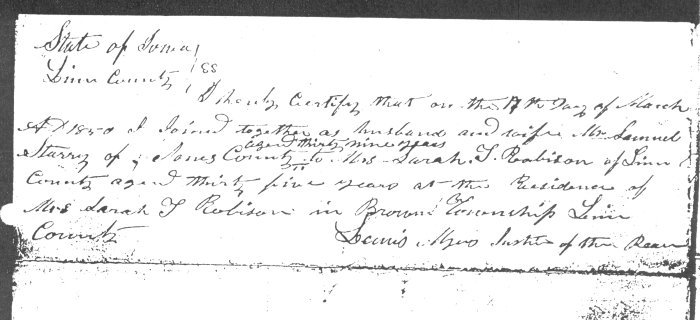 State of Iowa }
Linn County } SS
I hereby Certify that on the 7th Day of March
AD 1850 I Joined together as husband and wife Mr Samuel
aged thirty nine years
of Jones County to Mrs Sarah T Robison of Linn
County aged thirty five years at the Residence of
Mrs Sarah T Robison in Brown Township Linn
County Lewis Justice of the Peace